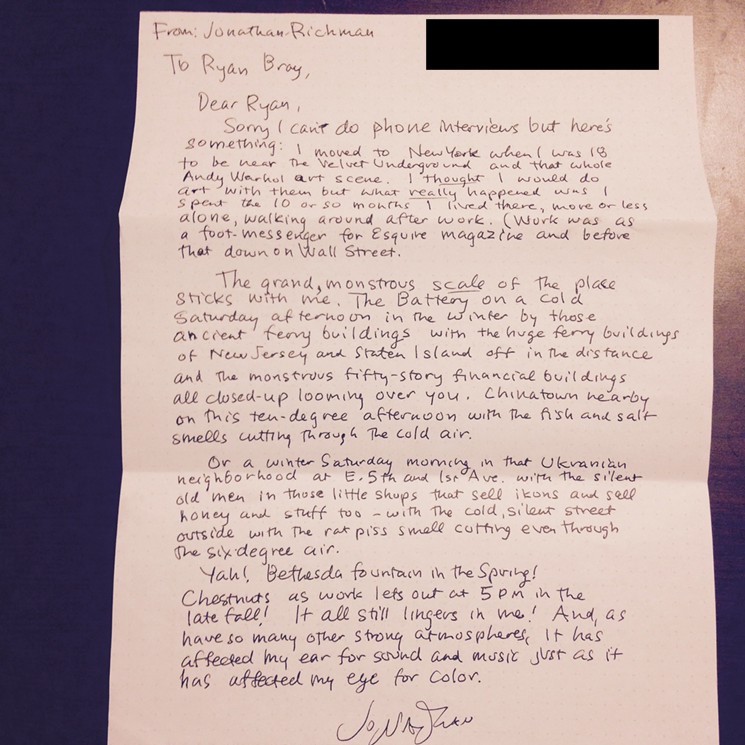 From: Jonathan Richman
To Ryan Bray,
Dear Ryan,
Sorry I can't do phone interviews but here's
something: I moved to New York when I was 18
to be near the Velvet Underground and that whole
Andy Warhol art scene. I thought I would do
art with them but what really happened was I
spent the 10 or so months I lived there, more or less
alone, walking around after work. (Work was as
a foot-messenger for Esquire magazine and before
that down on Wall Street.
The grand, monstrous scale of the place
sticks with me. The Battery on a cold
Saturday afternoon in the winter by those
ancient ferry buildings with the huge ferry buildings
of New Jersey and Staten Island off in the distance
and the monstrous fifty-story financial buildings
all closed-up looming over you. Chinatown nearby
on this ten-degree afternoon with the fish and salt
smells cutting through the cold air.
Or a winter Saturday morning in that Ukranian
neighborhood at E. 5th and 1st Ave. with the silent
old men in those little shops that sell ikons and sell
honey and stuff too - with the cold, silent street
outside with the rat piss smell cutting even through
the six-degree air.
Yah! Bethesda fountain in the Spring!
Chestnuts as work lets out at 5 pm in the
late fall! It all still lingers in me! And, as
have so many other strong atmospheres, it has
affected my ear for sound and music just as it
has affected my eye for color.
Jonathan